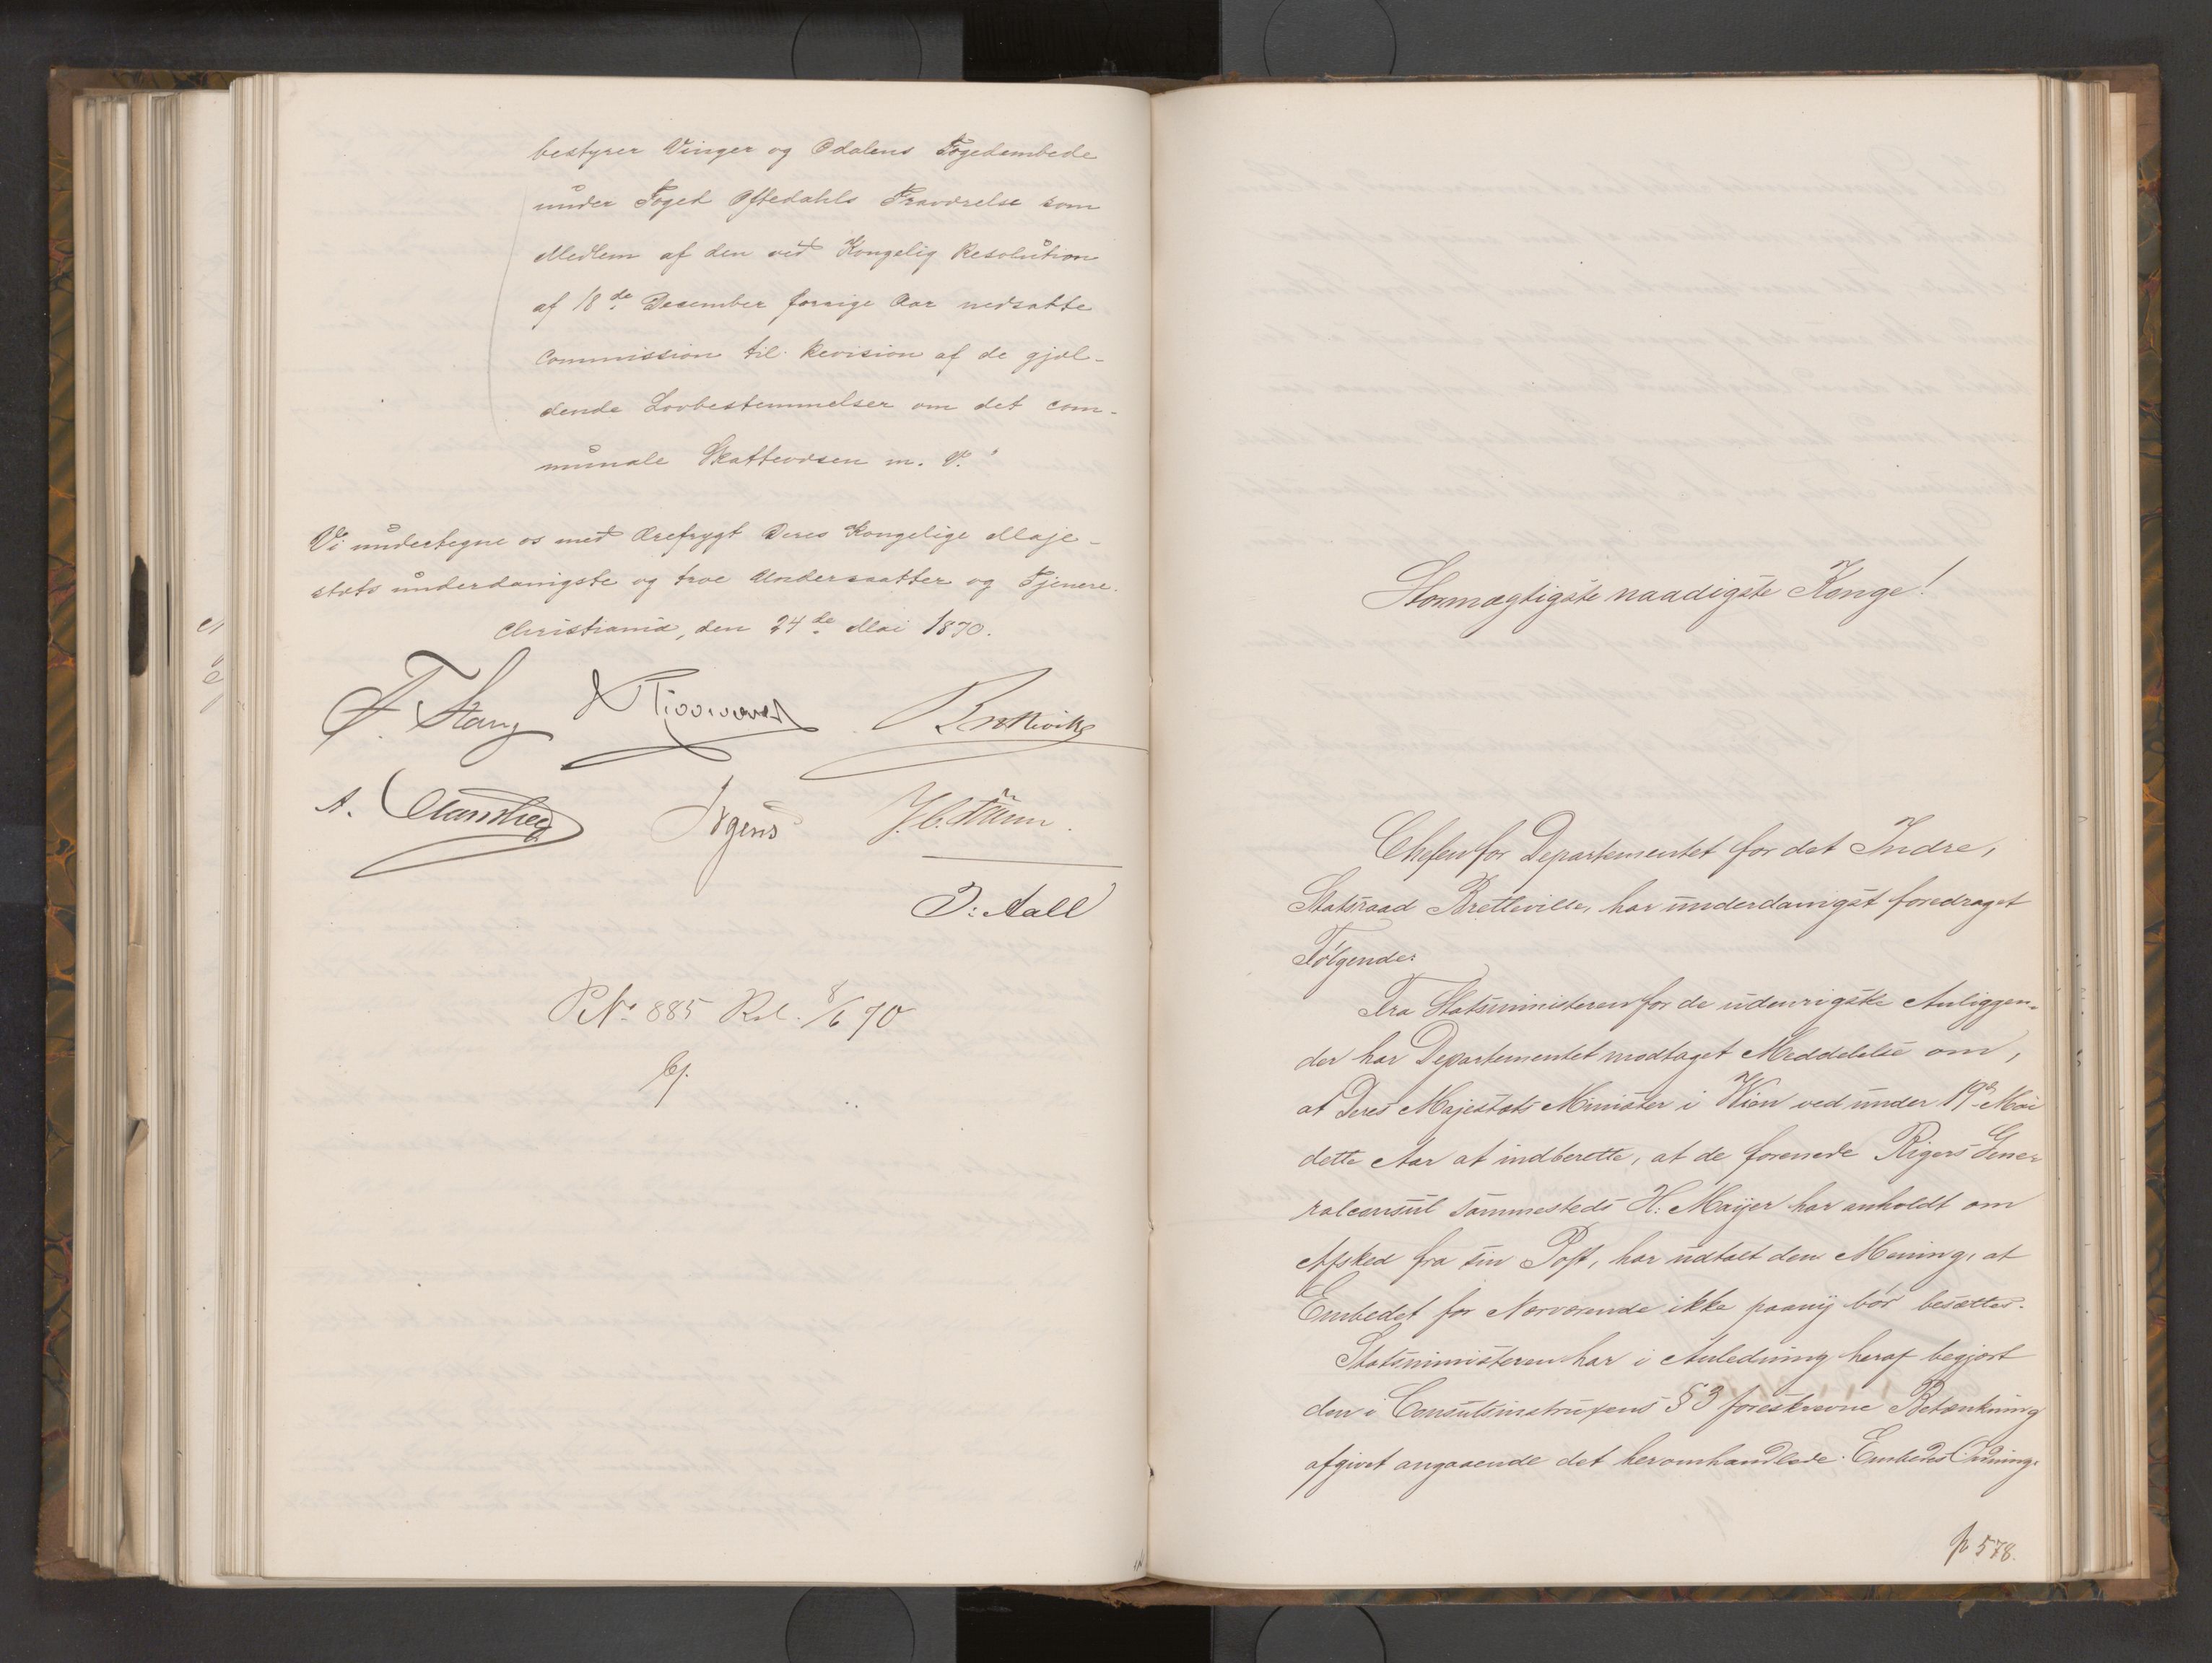 bestyrer Vinger og Odalens Fogedembede
under Foged Oftedahls Fraværelse som
Medlem af den ved Kongelig Resolution
af 18de December forrige Aar nedsatte
Commission til Revision af de gjæl-
dende Lovbestemmelser om det com-
munale Skattevæsen m. V."
Vi undertegne os med Ærefrygt Deres Kongelige Maje-
stæts underdanigste og troe Undersaatter og Tjenere.
Christiania, den 24de Mai 1870.
F. Stang
Bretteville
A.
Irgens
J. Aall
P. No. 885 Rsl. 8/6 70
Stormægtigste naadigste Konge!
Chefen for Departementet for det Indre,
Statsraad Bretteville, har underdanigst foredraget
Følgende:
Fra Statsministeren for de udenrigske Anliggen-
der har Departementet modtaget Meddelelse om,
at Deres Majestæts Minister i Wien ved under 19de Mai
dette Aar at indberette, at de forenede Rigers Gene-
ralconsul sammesteds H. Mayer har anholdt om
Afsked fra sin Post, har udtalt den Mening, at
Embedet for Nærværende ikke paany bør besættes.
Statsministeren har i Anledning heraf begjært
den i Consulsinstruxens § 3 foreskrevne Betænkning
afgivet angaaende det heromhandlede Embedes Inddrag-
p 578.